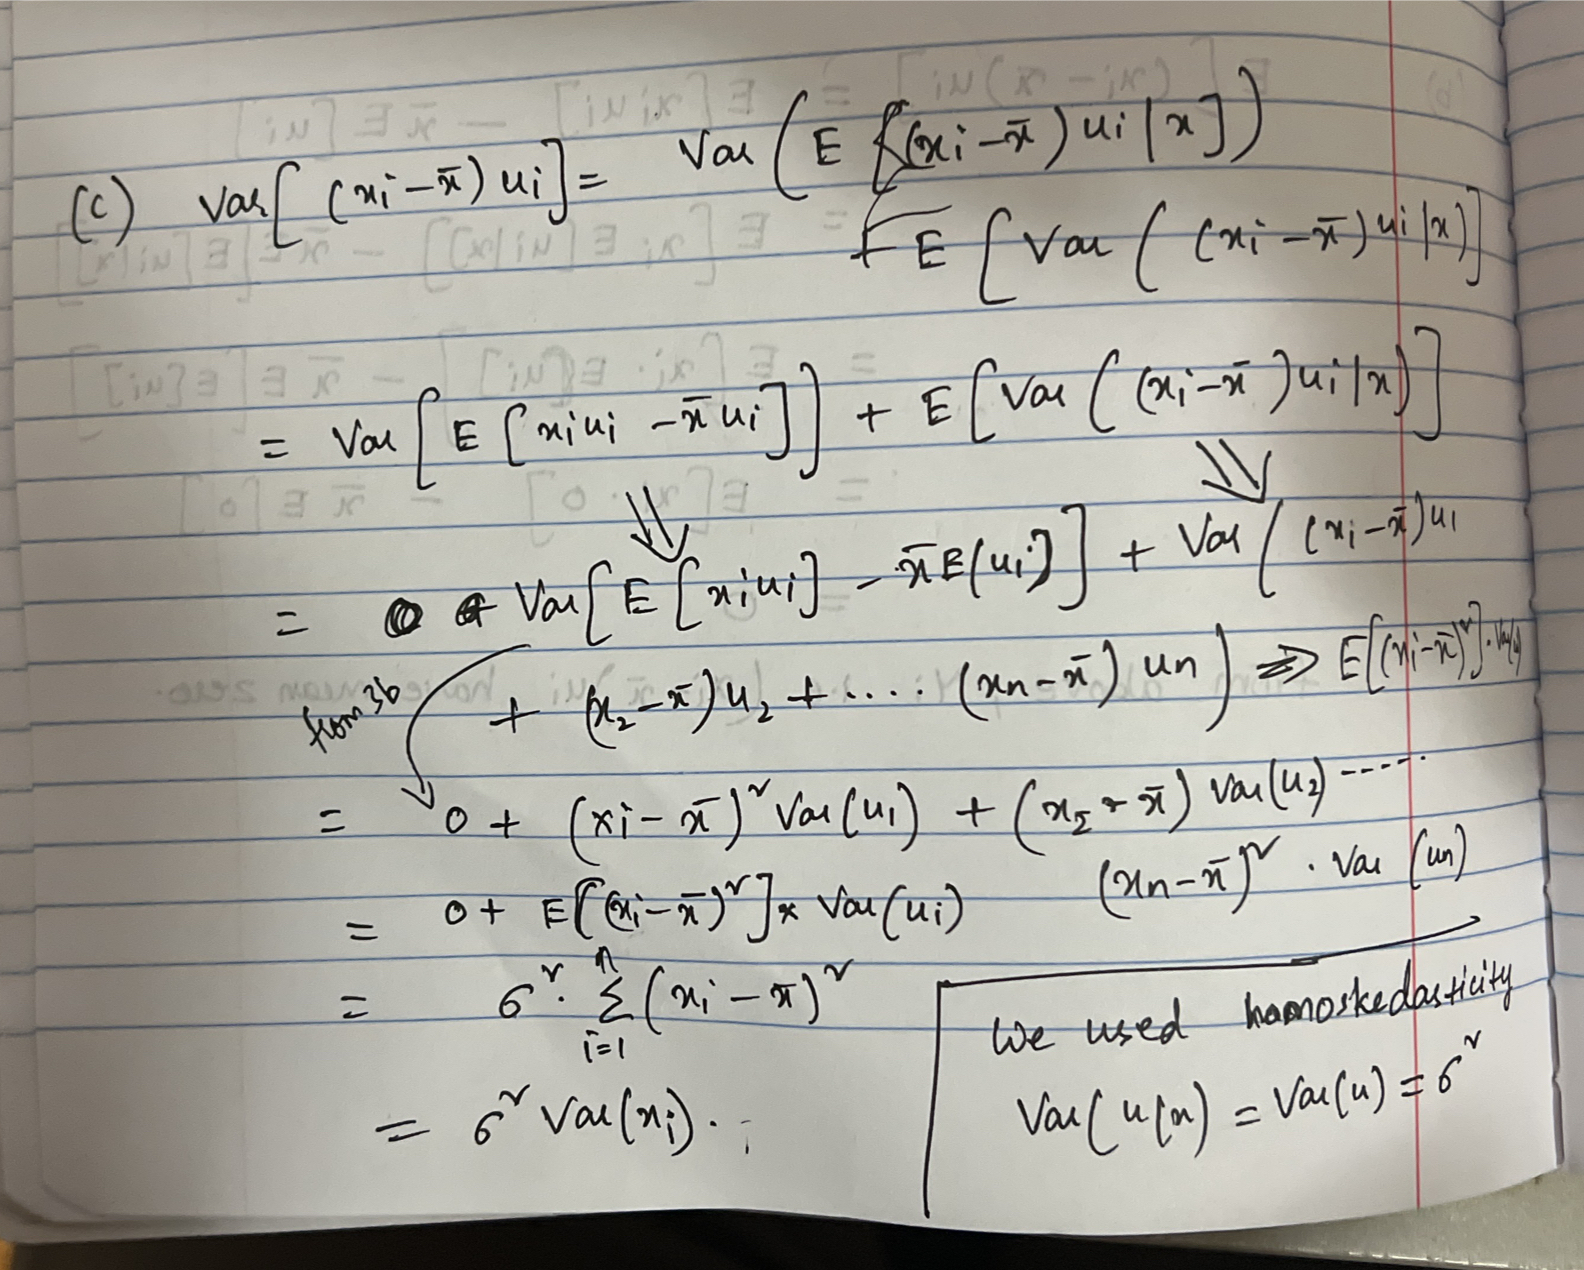 (c) Var[(xi − x̄) ui] = Var(E[(xi − x̄) ui | x])
+ E[Var((xi − x̄) ui | x)]
= Var[E[xiui − x̄ui]] + E[Var((xi − x̄) ui | x)]
⇓ ⇓
= Var[E[xiui] − x̄E(ui)] + Var((xi − x̄)u1
from 3b + (x2 − x̄)u2 + .... (xn − x̄) un) ⇒ E[(xi − x̄)²].Var(u)
= 0 + (xi − x̄)² Var(u1) + (x2 − x̄) Var(u2) -----
(xn − x̄)² . Var (un)
= 0 + E[(xi − x̄)²] × Var(ui)
= σ². Σ_{i=1}^{n} (xi − x̄)²
= σ² Var(xi).
We used homoskedasticity
Var(u|x) = Var(u) = σ²